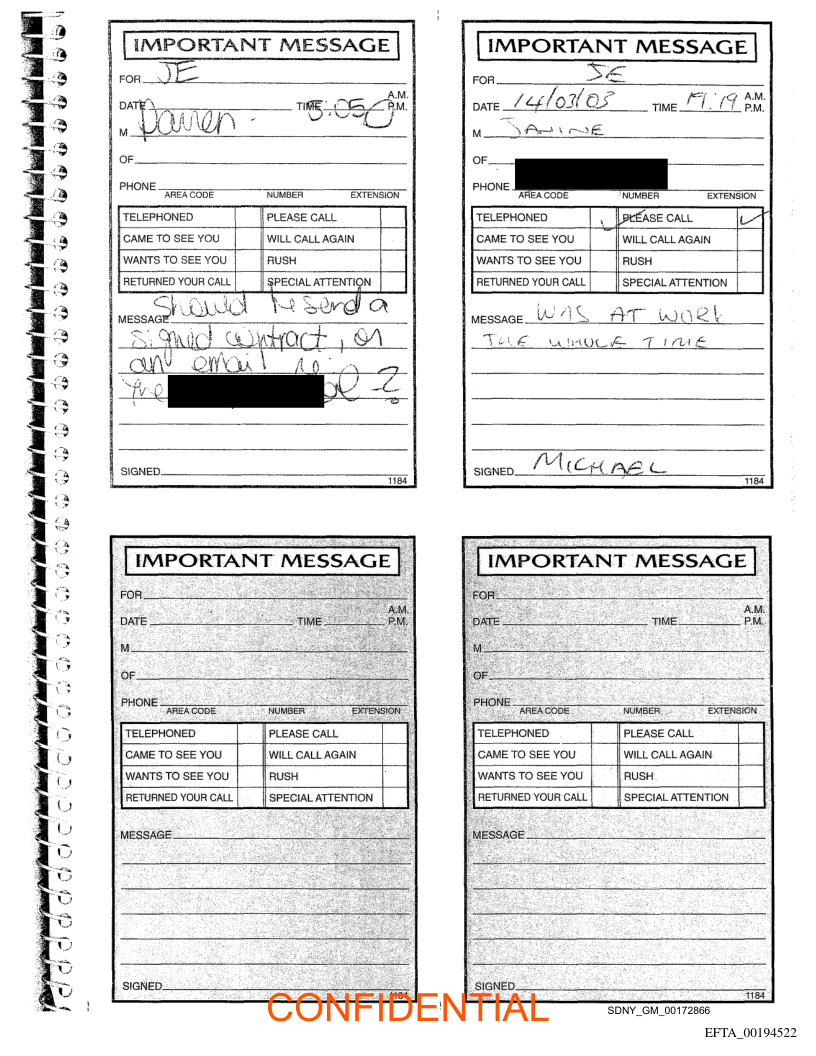 IMPORTANT MESSAGE
FOR JE
A.M.
DATE TIME 5:05 P.M.
M Darren -
OF
PHONE
AREA CODE NUMBER EXTENSION
TELEPHONED PLEASE CALL
CAME TO SEE YOU WILL CALL AGAIN
WANTS TO SEE YOU RUSH
RETURNED YOUR CALL SPECIAL ATTENTION
Should he send a
MESSAGE
signed contract, or
an email re:
the ?
SIGNED
1184
IMPORTANT MESSAGE
FOR JE
A.M.
DATE 14/03/03 TIME 19:19 P.M.
M JANINE
OF
PHONE
AREA CODE NUMBER EXTENSION
TELEPHONED ✓ PLEASE CALL ✓
CAME TO SEE YOU WILL CALL AGAIN
WANTS TO SEE YOU RUSH
RETURNED YOUR CALL SPECIAL ATTENTION
MESSAGE WAS AT WORK
THE WHOLE TIME
SIGNED MICHAEL
1184
IMPORTANT MESSAGE
FOR
A.M.
DATE TIME P.M.
M
OF
PHONE
AREA CODE NUMBER EXTENSION
TELEPHONED PLEASE CALL
CAME TO SEE YOU WILL CALL AGAIN
WANTS TO SEE YOU RUSH
RETURNED YOUR CALL SPECIAL ATTENTION
MESSAGE
SIGNED
1184
IMPORTANT MESSAGE
FOR
A.M.
DATE TIME P.M.
M
OF
PHONE
AREA CODE NUMBER EXTENSION
TELEPHONED PLEASE CALL
CAME TO SEE YOU WILL CALL AGAIN
WANTS TO SEE YOU RUSH
RETURNED YOUR CALL SPECIAL ATTENTION
MESSAGE
SIGNED
1184
CONFIDENTIAL
SDNY_GM_00172866
EFTA_00194522